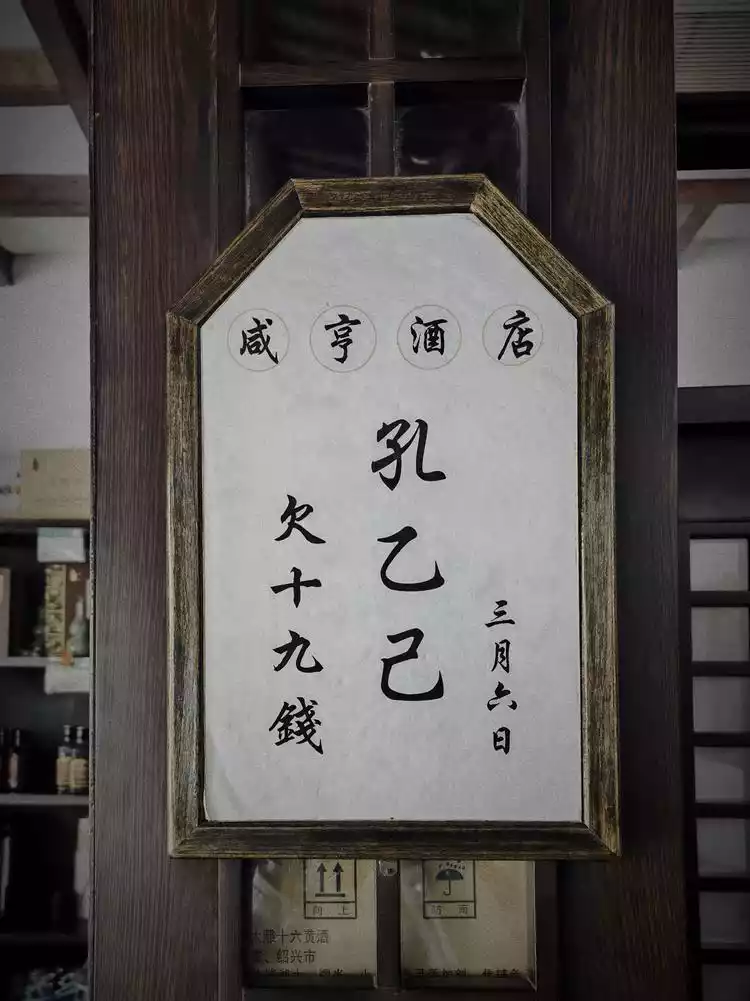 咸亨酒店
三月六日
孔乙己
欠十九錢
向上
十六黄酒
绍兴市